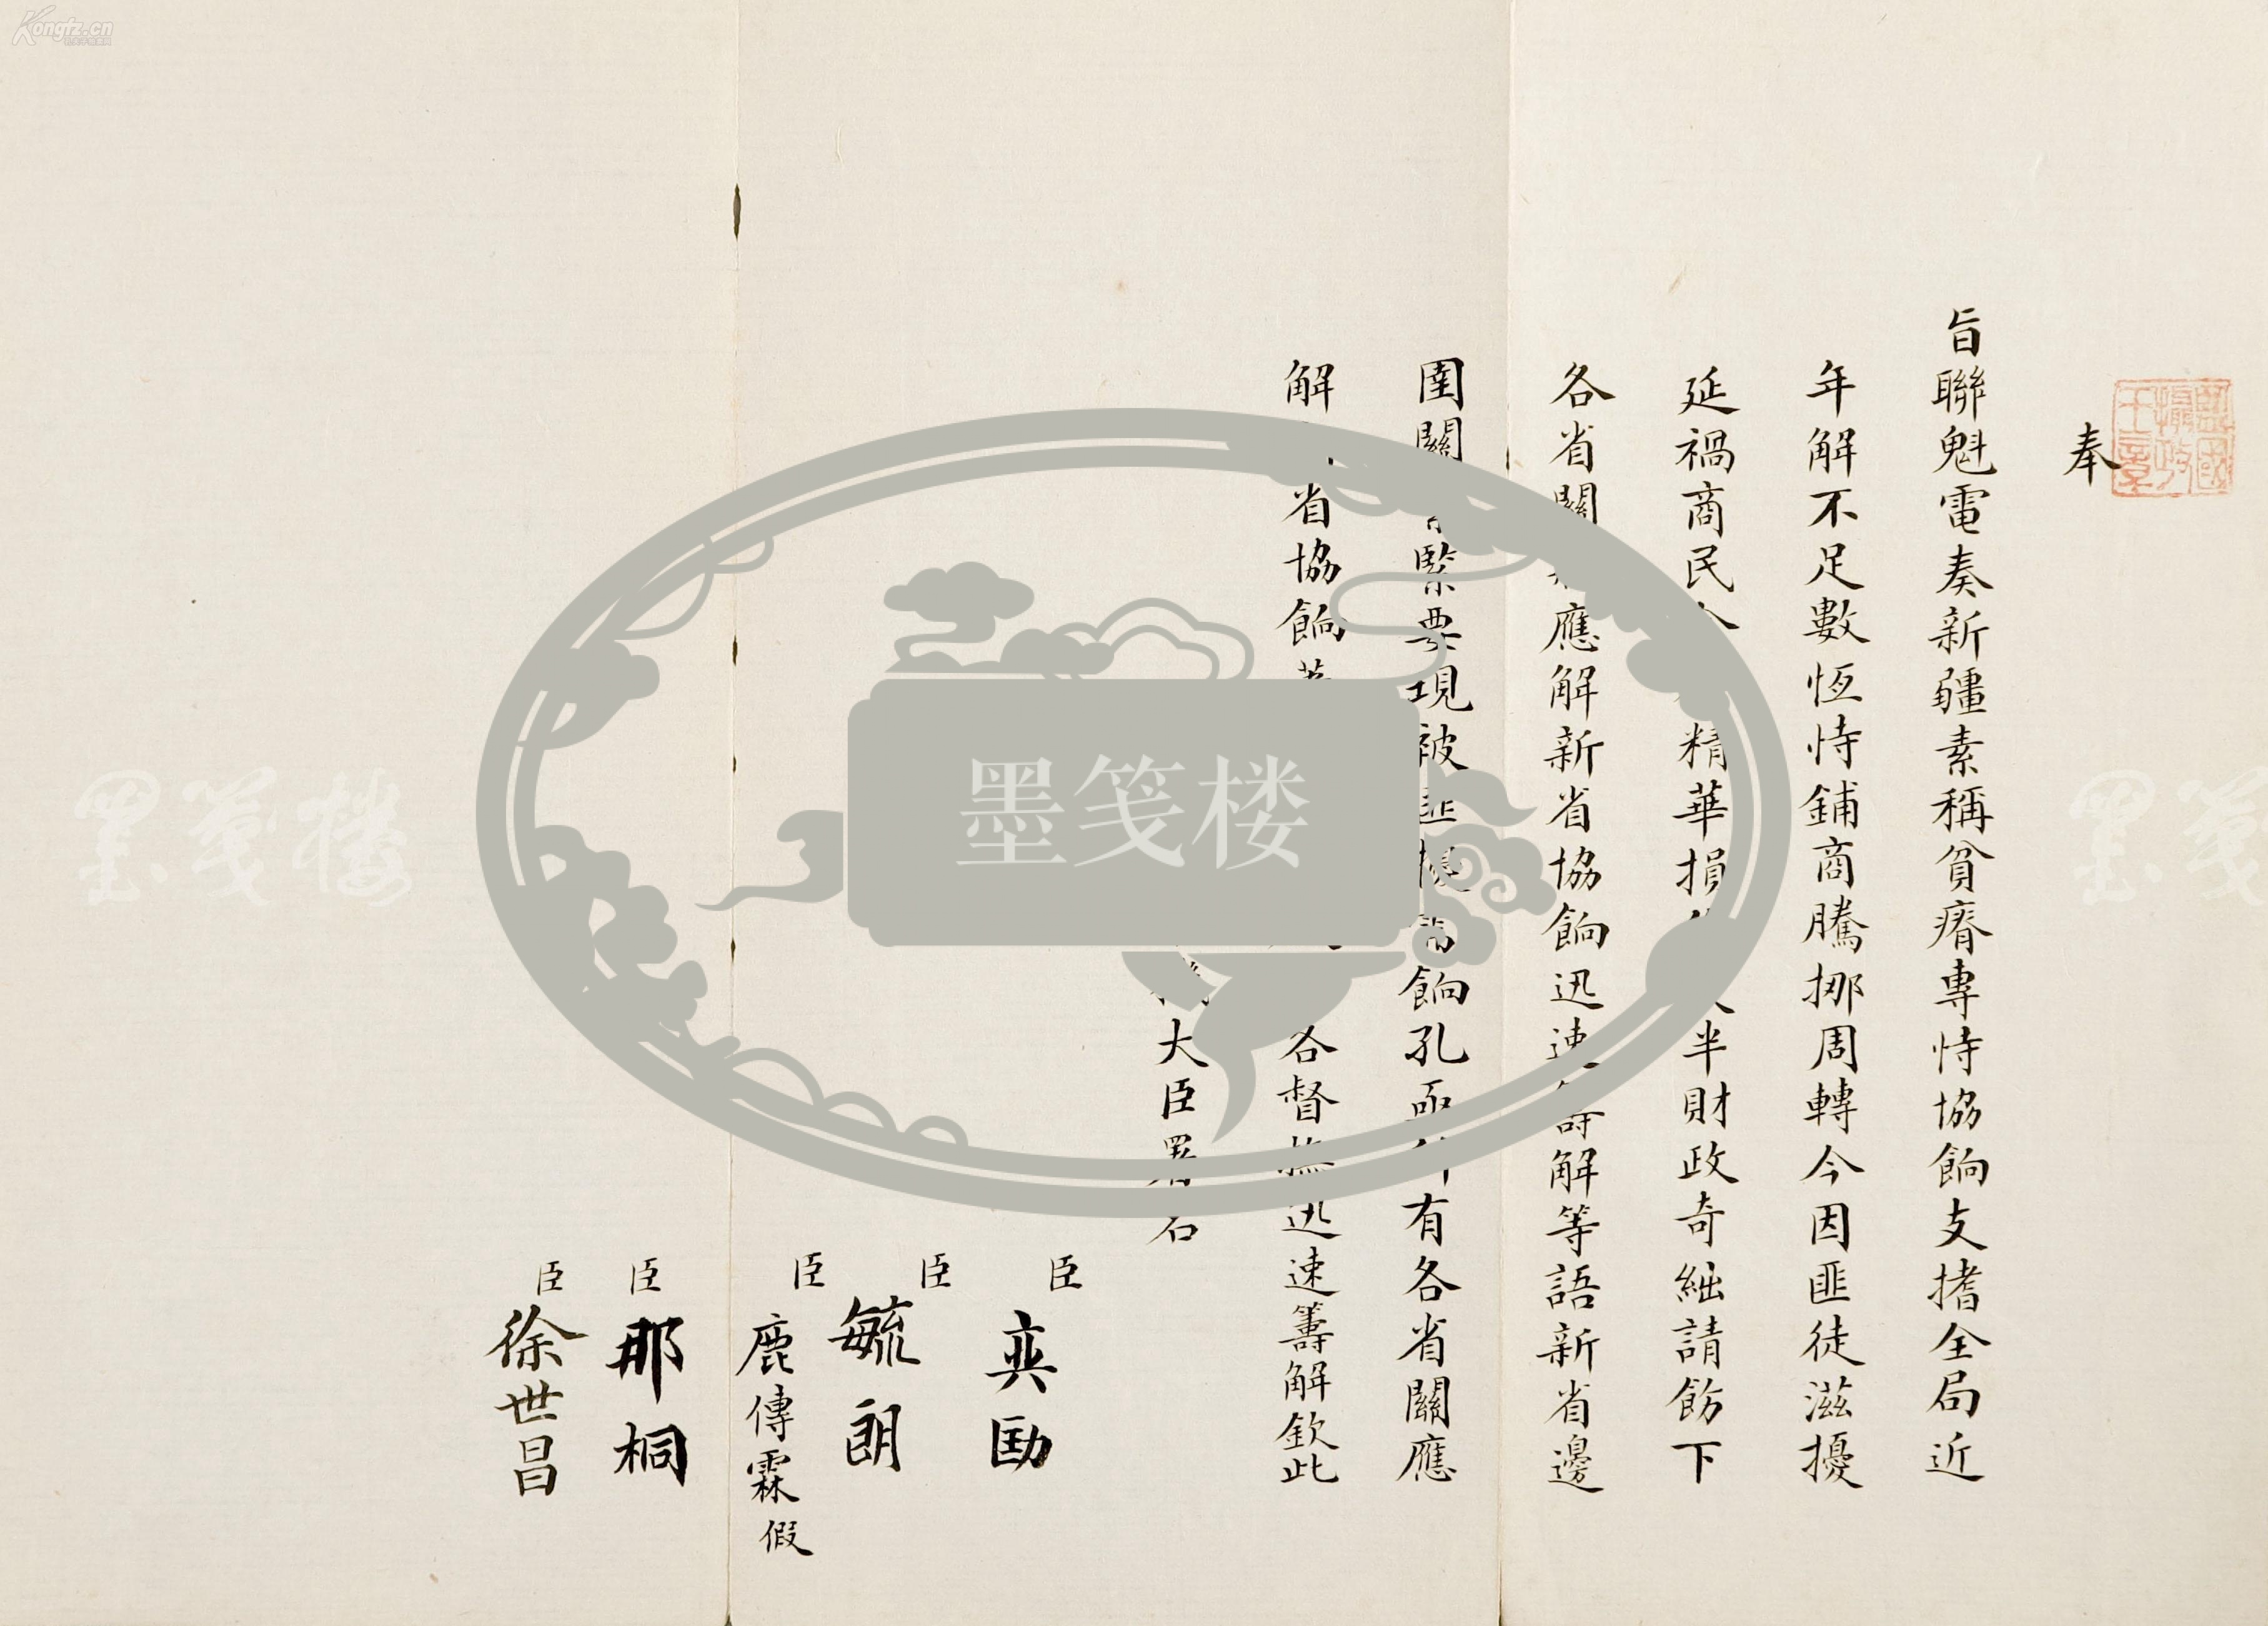 監國攝政王章
奉
旨聯魁電奏新疆素稱貧瘠專恃協餉支撐全局近
年解不足數恆恃鋪商騰挪周轉今因匪徒滋擾
延禍商民 精華損 半財政奇絀請飭下
各省關 應解新省協餉迅速籌解等語新省邊
圉關 緊要現被匪擾需餉孔亟 有各省關應
解 省協餉著 各督撫迅速籌解欽此
大臣署名
臣 奕劻
臣 毓朗
臣 鹿傳霖 假
臣 那桐
臣 徐世昌
墨笺楼
墨笺楼
墨笺
Kongfz.cn